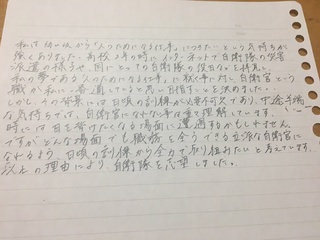 私は幼い頃から「人のためになる仕事」につきたいという気持ちが
強くありました。高校2年の時にインターネットで自衛隊の災害
派遣の様子や、国にとっての自衛隊の役目などを拝見し、
私の夢である「人のためになる仕事」に
職が私に一番適していると思い目指すことを決めました。
しかし、その背景には日頃の訓練が必要不可欠であり、中途半端
な気持ちでは、自衛官になれない事は重々理解しています。
時には目を背けたくなる場面に遭遇するかもしれません。
ですがどんな場面でも職務を全うできる立派な自衛官に
なれるよう、日頃の訓練から全力で取り組みたいと考えています。
以上の理由により、自衛隊を志望しました。